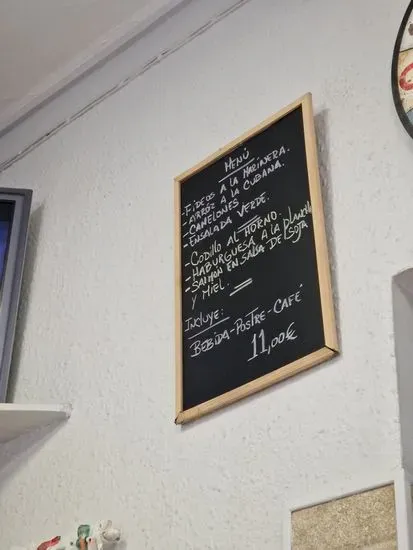 MENÚ
-FIDEOS A LA MARINERA.
-ARROZ A LA CUBANA.
-CANELONES.
-ENSALADA VERDE.
-CODILLO AL HORNO.
-HABURGUESA A LA PLANCHA
-SALMON EN SALSA DE SOJA
Y MIEL.
INCLUYE:
BEBIDA-POSTRE-CAFÉ
11,00€